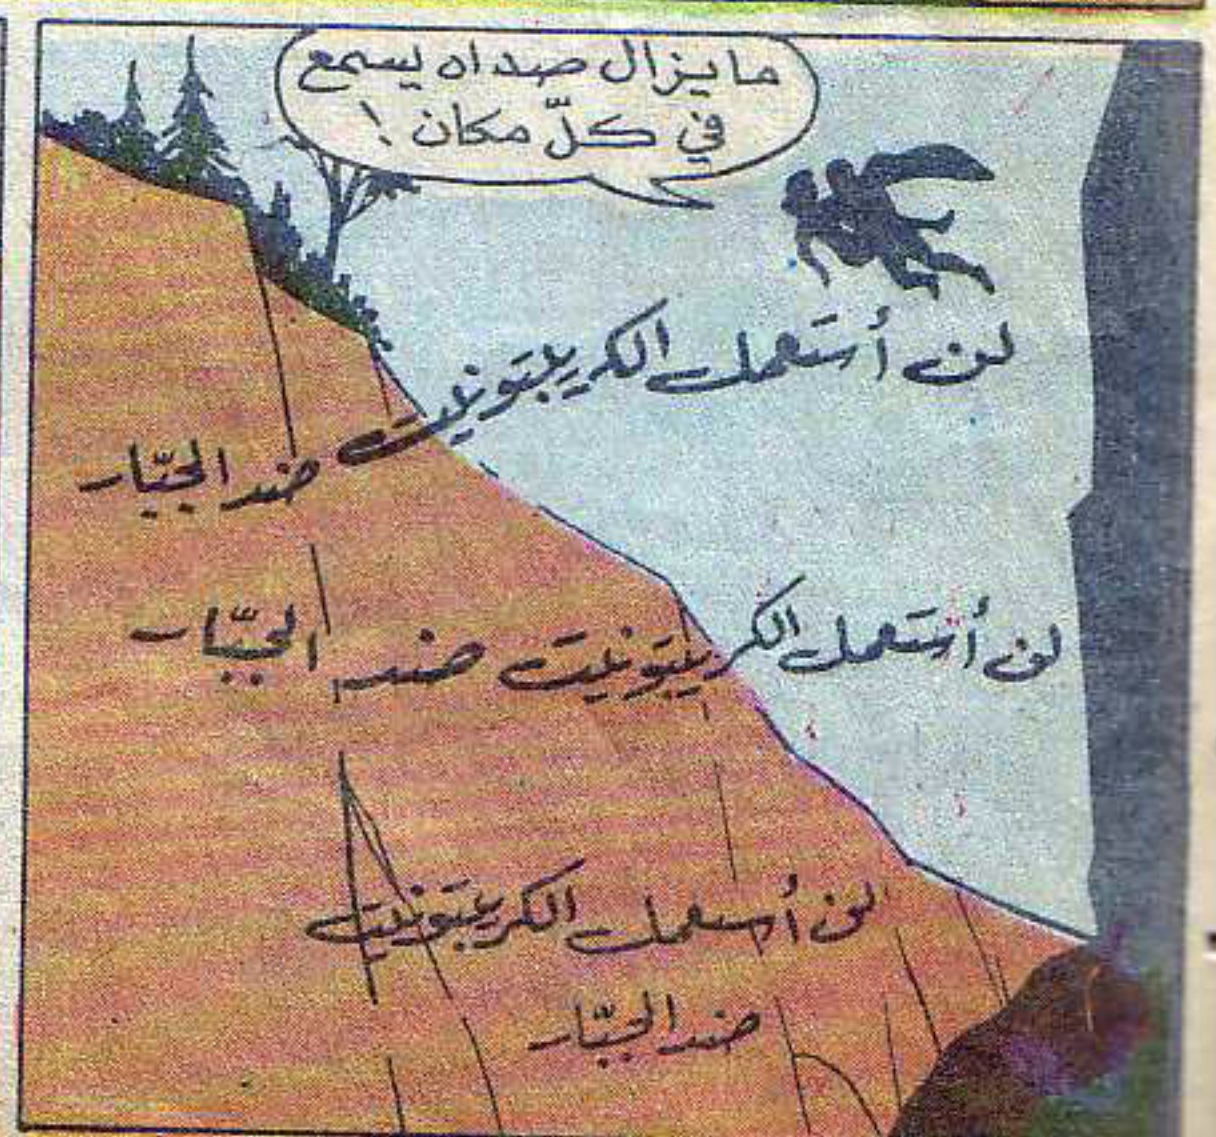 ما يزال صداه يسمع
في كلّ مكان !
لن أستعمل الكريبتونيت ضد الجبّار
لن أستعمل الكريبتونيت ضد الجبّار
لن أستعمل الكريبتونيت
ضد الجبّار